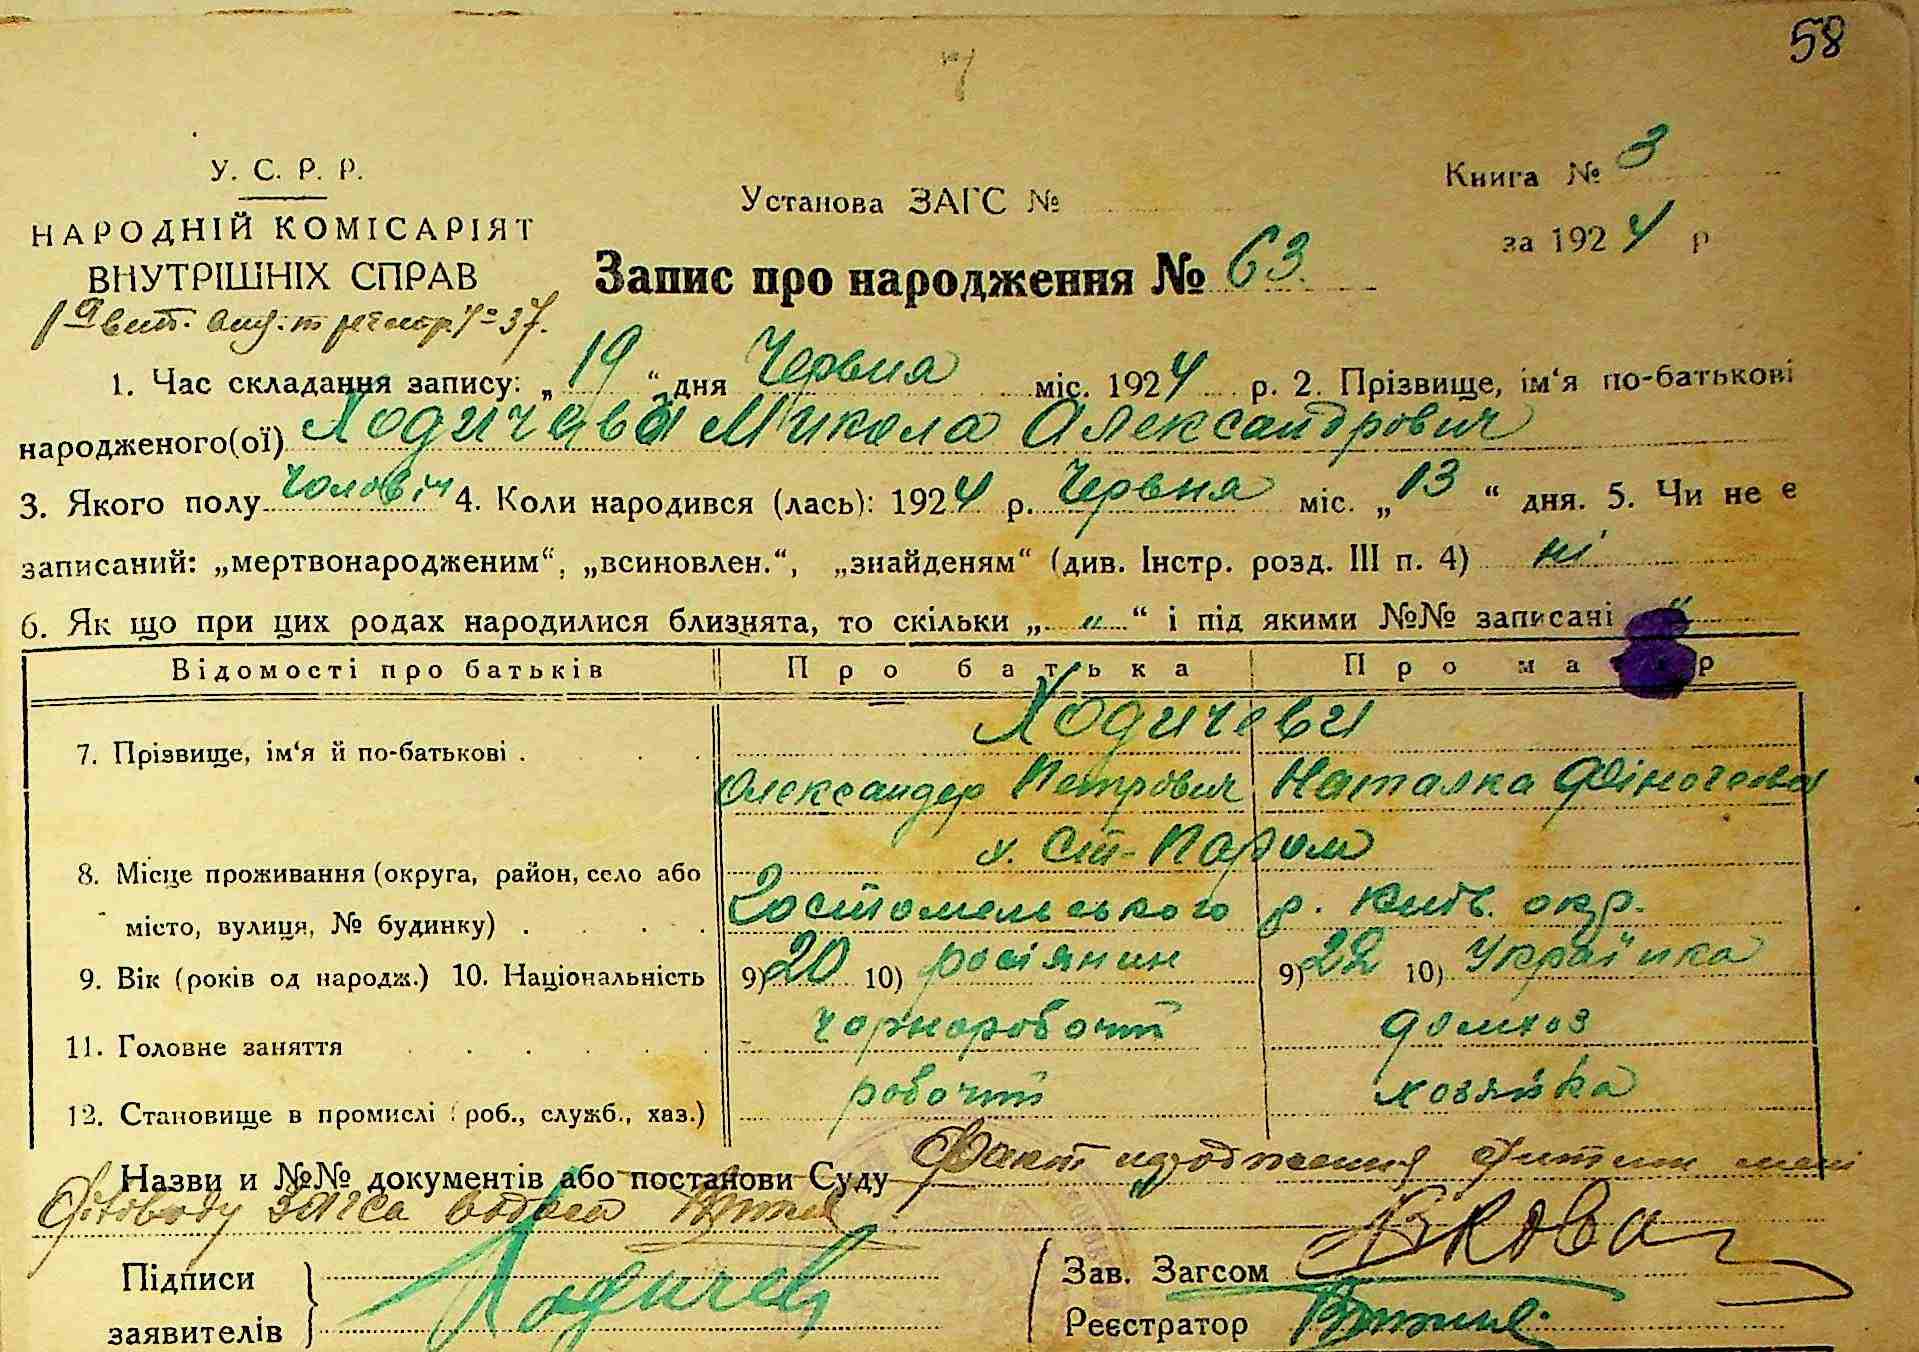 58
У. С. Р. Р.
НАРОДНІЙ КОМІСАРІЯТ
ВНУТРІШНІХ СПРАВ
Установа ЗАГС №
Книга № 3
за 1924 р
Запис про народження № 63.
1. Час складання запису: „19“ дня Червня міс. 1924 р. 2. Прізвище, ім‘я по-батькові
народженого(ої) Микола Олександрович
3. Якого полу чоловіч 4. Коли народився (лась): 1924 р. Червня міс. „13“ дня. 5. Чи не є
записаний: „мертвонародженим“, „всиновлен.“, „знайденям“ (див. Інстр. розд. III п. 4) ні
6. Як що при цих родах народилися близнята, то скільки „ „ “ і під якими №№ записані „
Відомості про батьків Про батька Про матір
7. Прізвище, ім‘я й по-батькові . Ходичеви
Олександер Петрович Наталка
х. Ст-Паром
8. Місце проживання (округа, район, село або
місто, вулиця, № будинку) . Гостомельського р. Київ. окр.
9. Вік (років од народж.) 10. Національність 9) 20 10) росіянин 9) 22 10) Українка
11. Головне заняття чорноробочий домхоз
12. Становище в промислі (роб., служб., хаз.) робочий хозяйка
Назви и №№ документів або постанови Суду Факт народження дитини мені
загса
Підписи
заявителів Ходичев
Зав. Загсом
Реєстратор